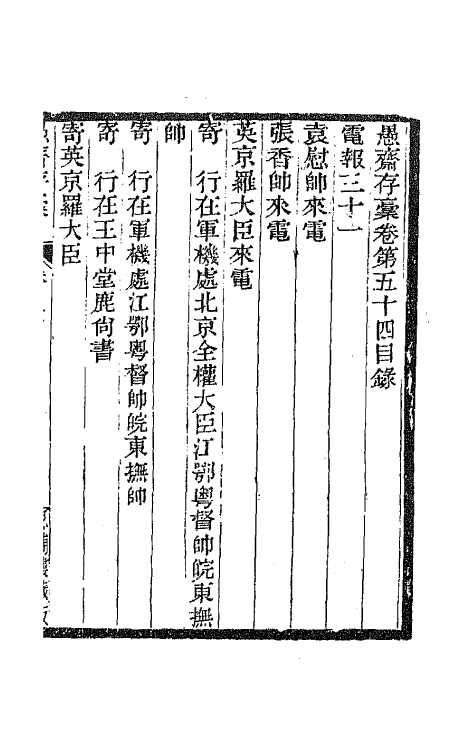 愚齋存稾卷第五十四目錄
電報三十一
袁慰帥來電
張香帥來電
英京羅大臣來電
寄　行在軍機處北京全權大臣江鄂粤督帥皖東撫
帥
寄　行在軍機處江鄂粤督帥皖東撫帥
寄　行在王中堂鹿尙書
寄英京羅大臣